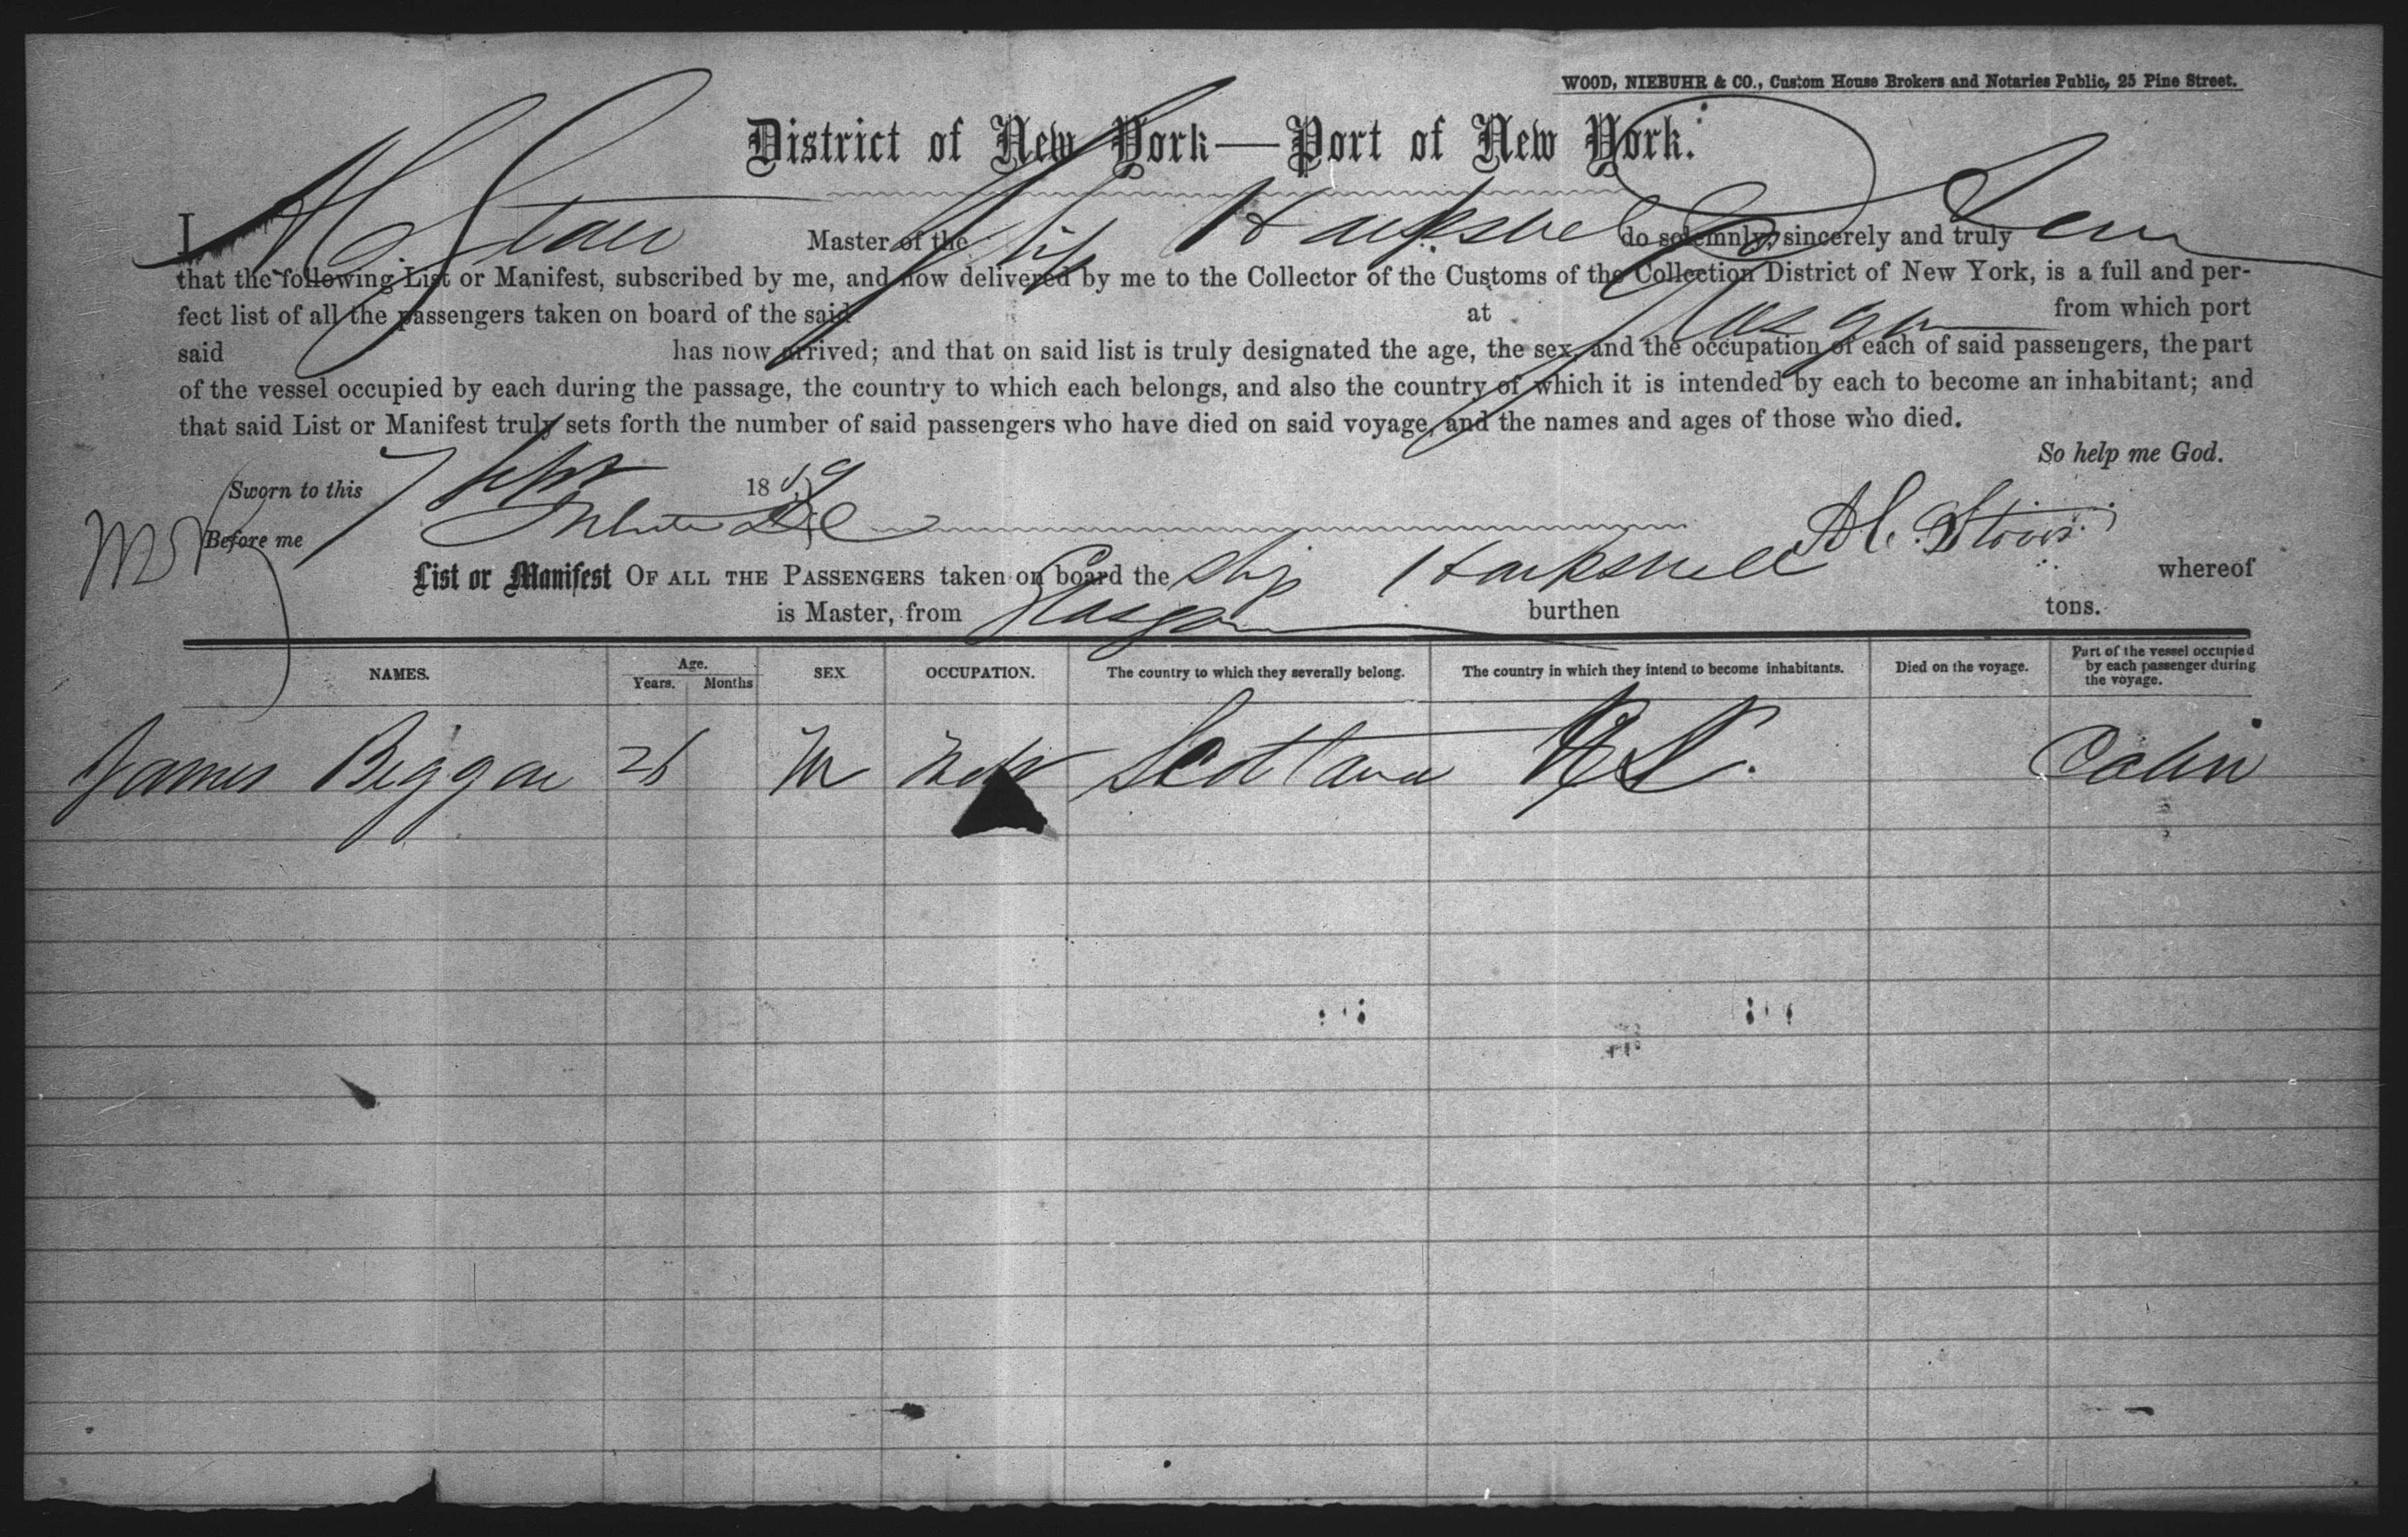 WOOD, NIEBUHR & CO., Custom House Brokers and Notaries Public, 25 Pine Street.
District of New York—Port of New York.
I, Master of the Ship Harpswell do solemnly, sincerely and truly
that the following List or Manifest, subscribed by me, and now delivered by me to the Collector of the Customs of the Collection District of New York, is a full and per-
fect list of all the passengers taken on board of the said at Glasgow from which port
said has now arrived; and that on said list is truly designated the age, the sex, and the occupation of each of said passengers, the part
of the vessel occupied by each during the passage, the country to which each belongs, and also the country of which it is intended by each to become an inhabitant; and
that said List or Manifest truly sets forth the number of said passengers who have died on said voyage, and the names and ages of those who died.
So help me God.
Sworn to this 7 Sept 1869
Before me
List or Manifest OF ALL THE PASSENGERS taken on board the Ship Harpswell whereof
is Master, from Glasgow burthen tons.
NAMES. Age. Years. Months SEX OCCUPATION. The country to which they severally belong. The country in which they intend to become inhabitants. Died on the voyage. Part of the vessel occupied by each passenger during the voyage.
James Biggar 26 M Scotland U S. Cabin